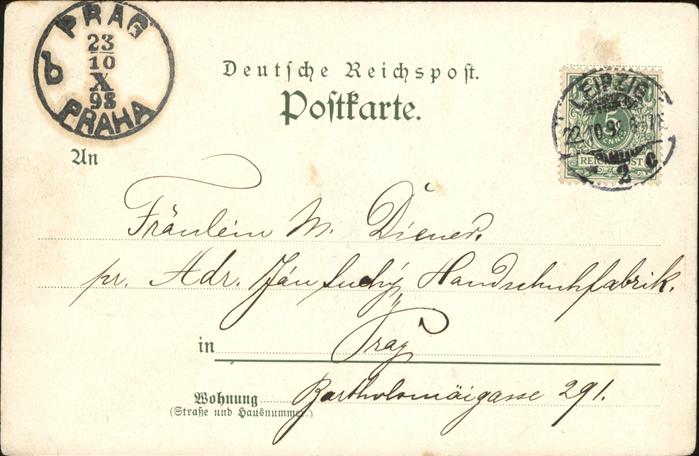 PRAG
23
10
X
98
b
PRAHA
Deutsche Reichspost.
Postkarte.
LEIPZIG
22.10.98
2 c
5
REICHSPOST
An
Fräulein M. Diener.
pr. Adr. Ján Suchý, Handschuhfabrik.
in Prag
Wohnung Bartholomäigasse 291.
(Straße und Hausnummer.)